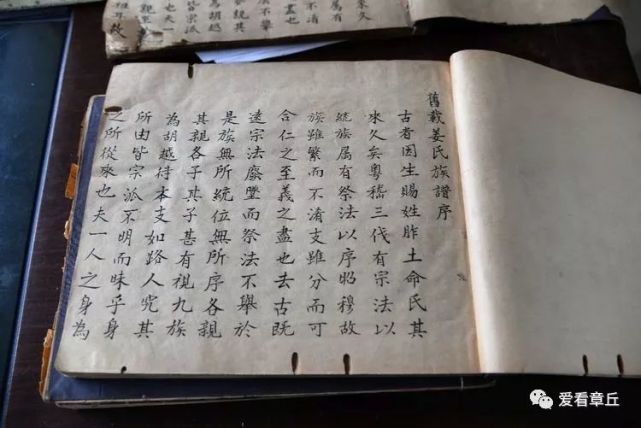 舊載姜氏族譜序
古者因生賜姓胙土命氏其
來久矣粵稽三代有宗法以
統族属有祭法以序昭穆故
族雖繁而不淆支雖分而可
合仁之至義之盡也去古既
遠宗法廢墜而祭法不舉於
是族無所統位無所序各親
其親各子其子甚有視九族
為胡越待本支如路人究其
所由皆宗派不明而昧乎身
之所從來也夫一人之身為
來久
属有
不淆
盡也
法不舉
為胡越
皆宗派
爱看章丘